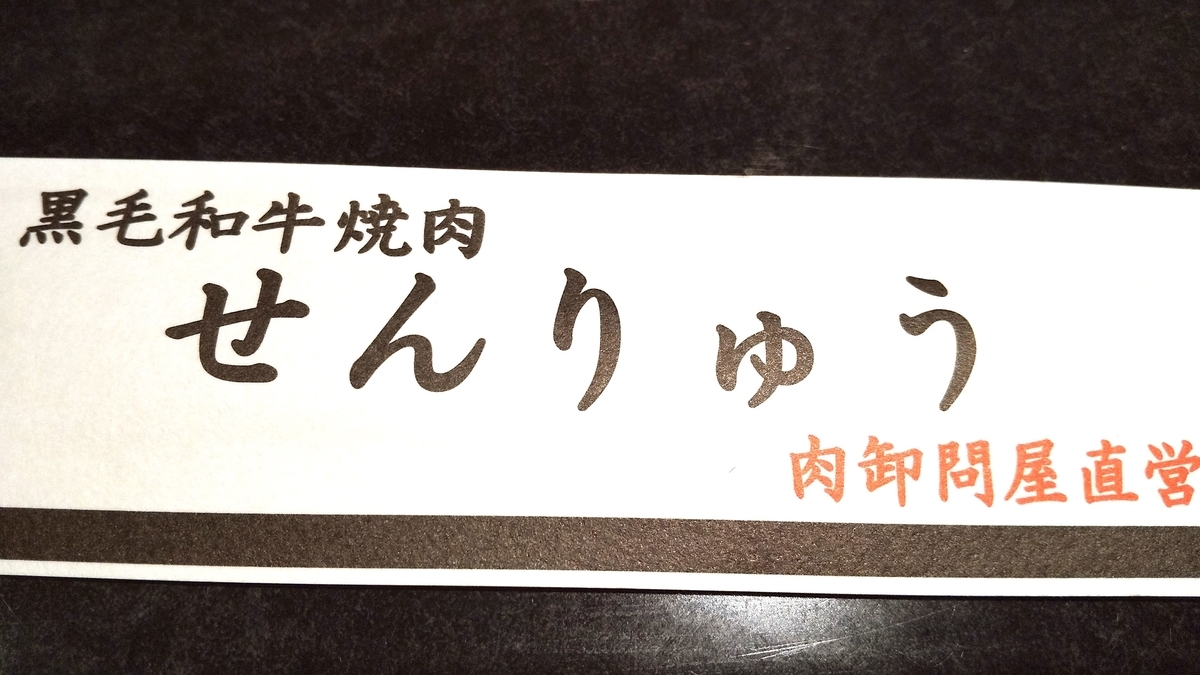 黒毛和牛焼肉
せんりゅう
肉卸問屋直営